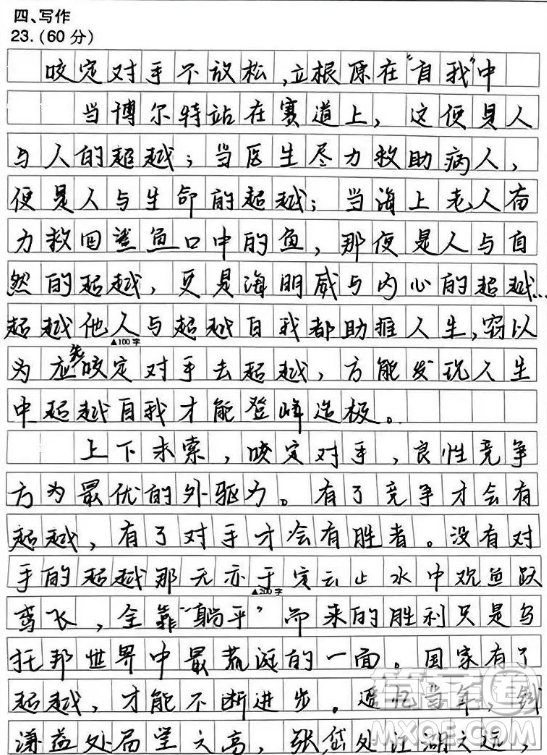 四、写作
23.(60分)
咬定对手不放松,立根原在"自我"中
当博尔特站在赛道上,这便是人
与人的超越;当医生尽力救助病人,
便是人与生命的超越;当海上老人奋
力救回鲨鱼口中的鱼,那便是人与自
然的超越,更是海明威与内心的超越…
超越他人与超越自我都助推人生,窃以
▲100字
为应先咬定对手去超越,方能发现人生
中超越自我才能登峰造极。
上下求索,咬定对手,良性竞争
方为最优的外驱力。有了竞争才会有
超越,有了对手才会有胜者。没有对
手的超越那无亦于定云止水中观鱼跃
▲200字
鸢飞,全靠"躺平"而来的胜利只是乌
托邦世界中最荒诞的一面。国家有了
超越,才能不断进步。遥忆当年,钱
谦益处庙堂之高,张岱处江湖之远,
MXQE.COM